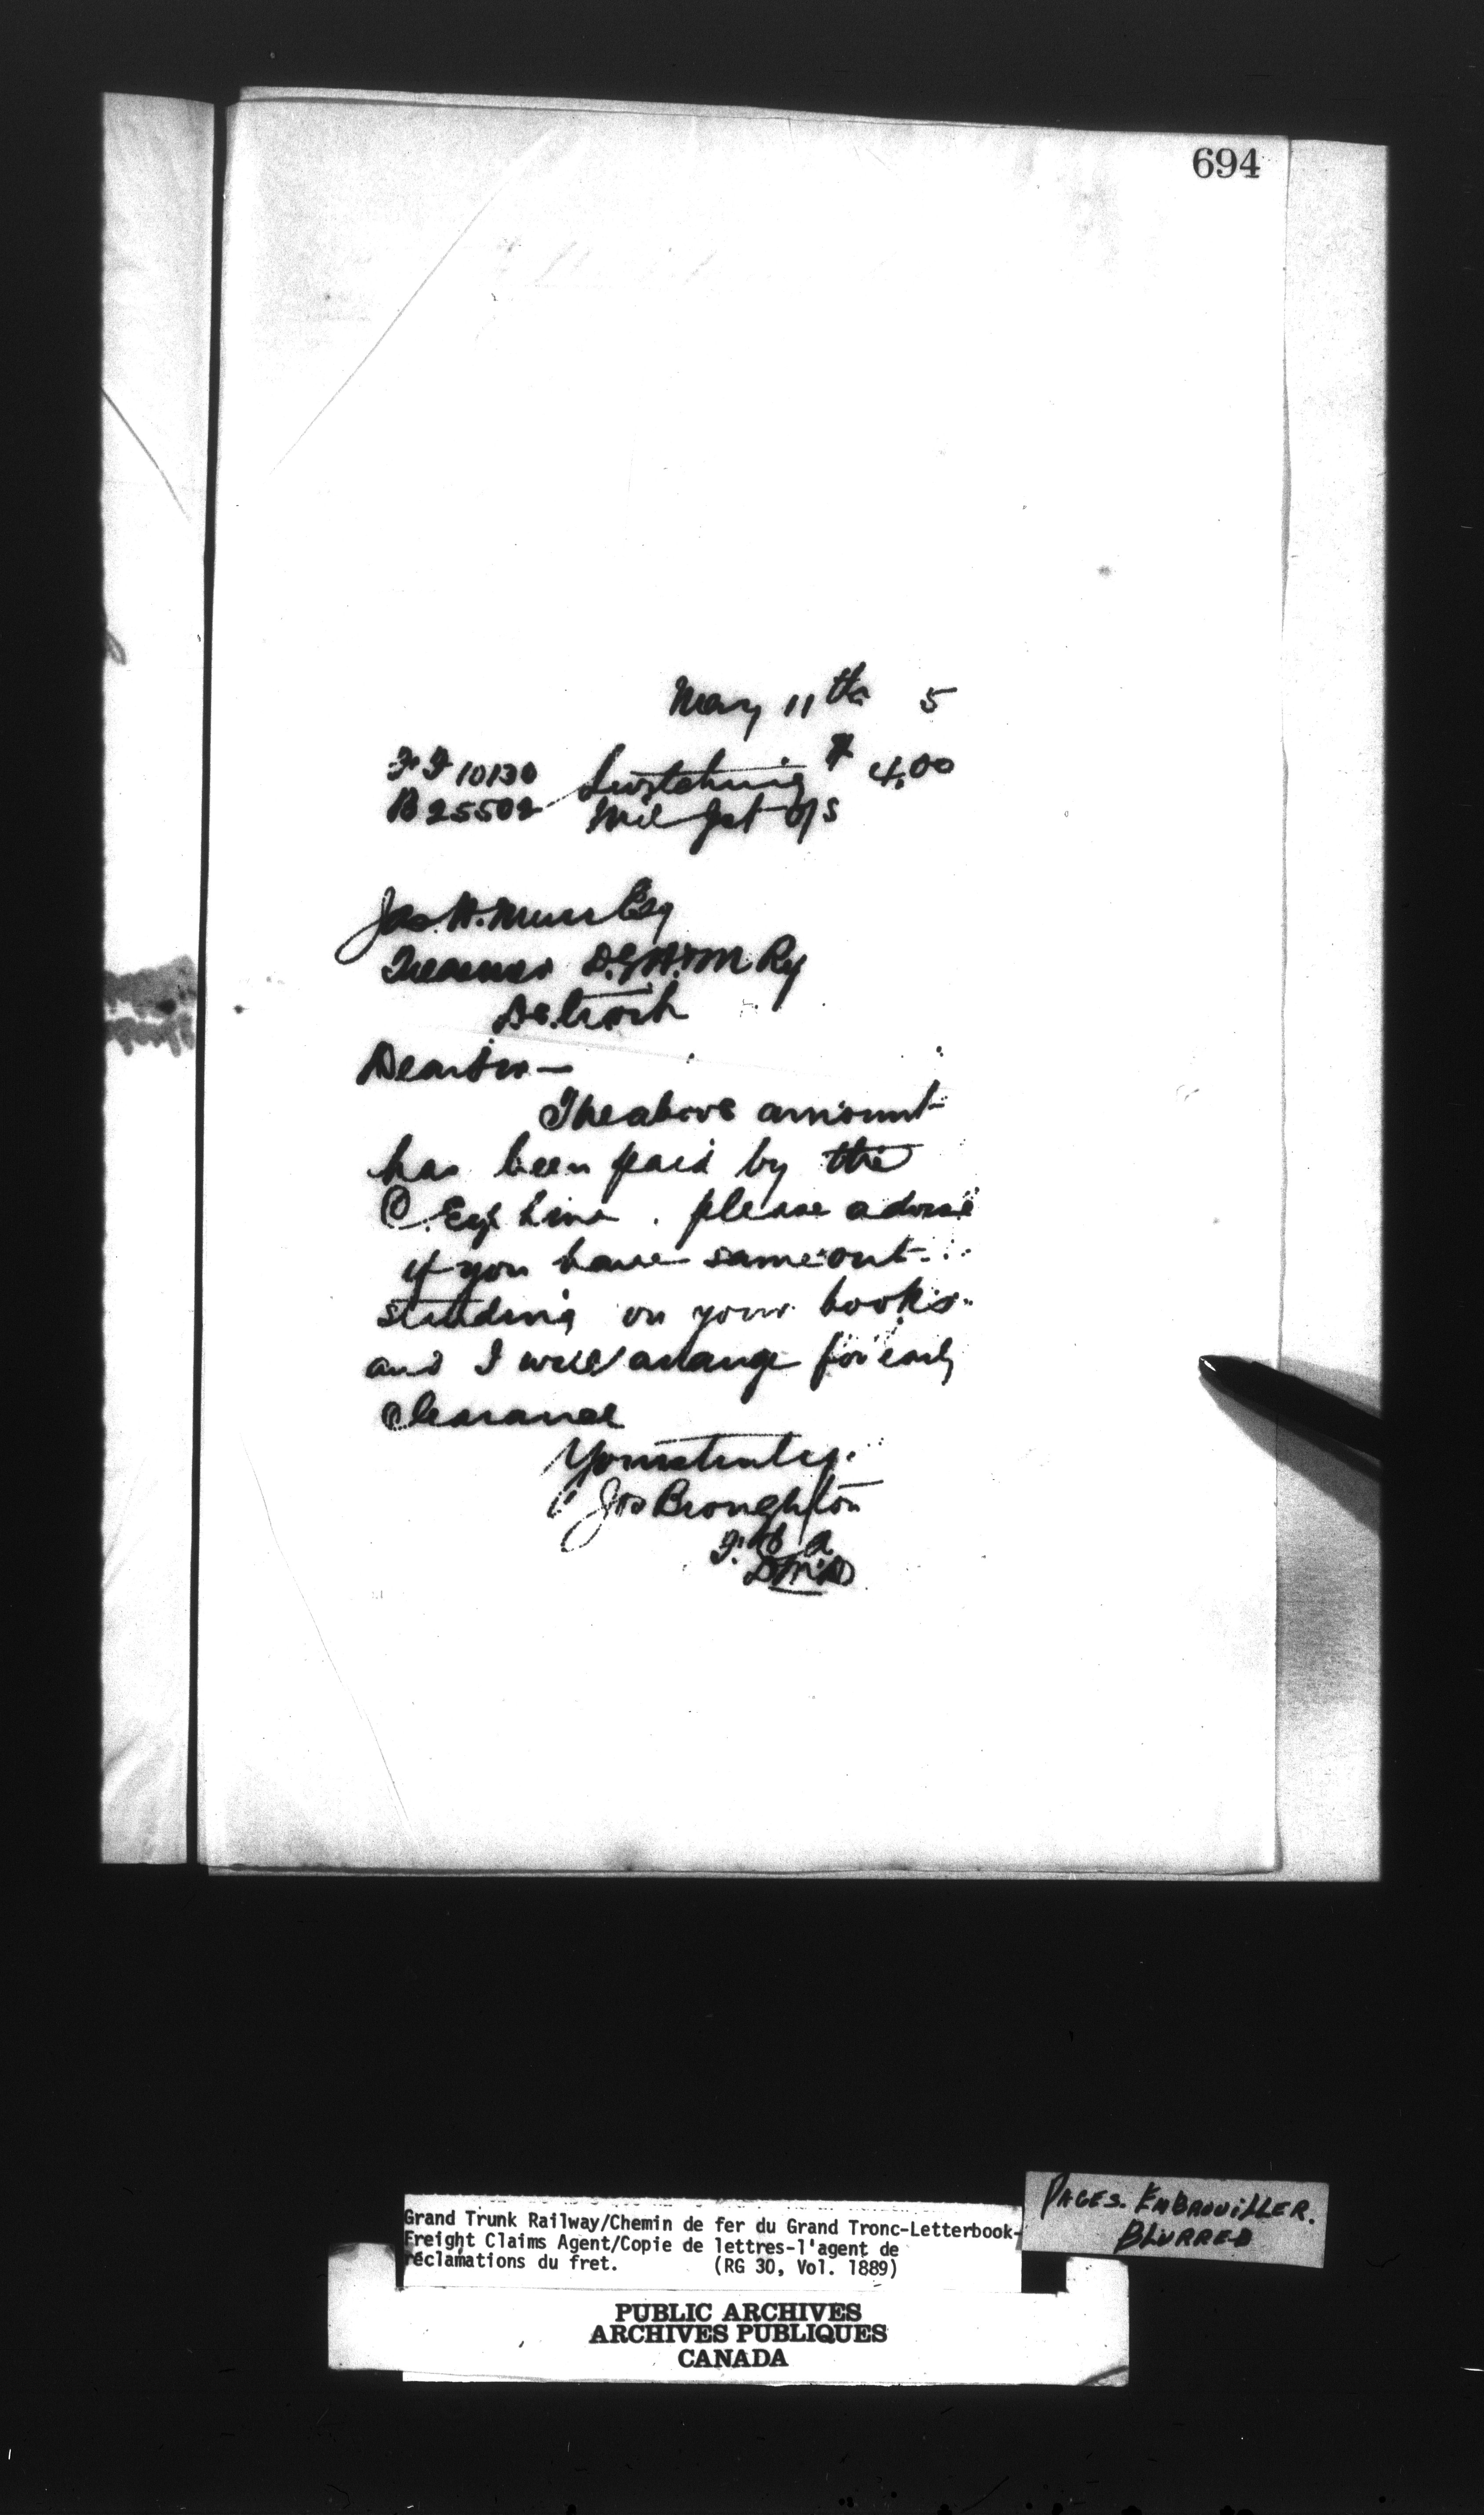 694
May 11th 5
FF 10130 Switching $ 4.00
B 25502 Mil Jct O/S
Jas. H. Muir Esq
Treasurer D.G.H. & M Ry
Detroit
Dear Sir —
The above amount
has been paid by the
C. Exp Line. please advise
if you have same out-
standing on your books
and I will arrange for early
clearance
Yours truly
Jos Broughton
F. C. A
Grand Trunk Railway/Chemin de fer du Grand Tronc-Letterbook-
Freight Claims Agent/Copie de lettres-l'agent de
réclamations du fret. (RG 30, Vol. 1889)
PAGES. EMBROUILLER.
BLURRED
PUBLIC ARCHIVES
ARCHIVES PUBLIQUES
CANADA